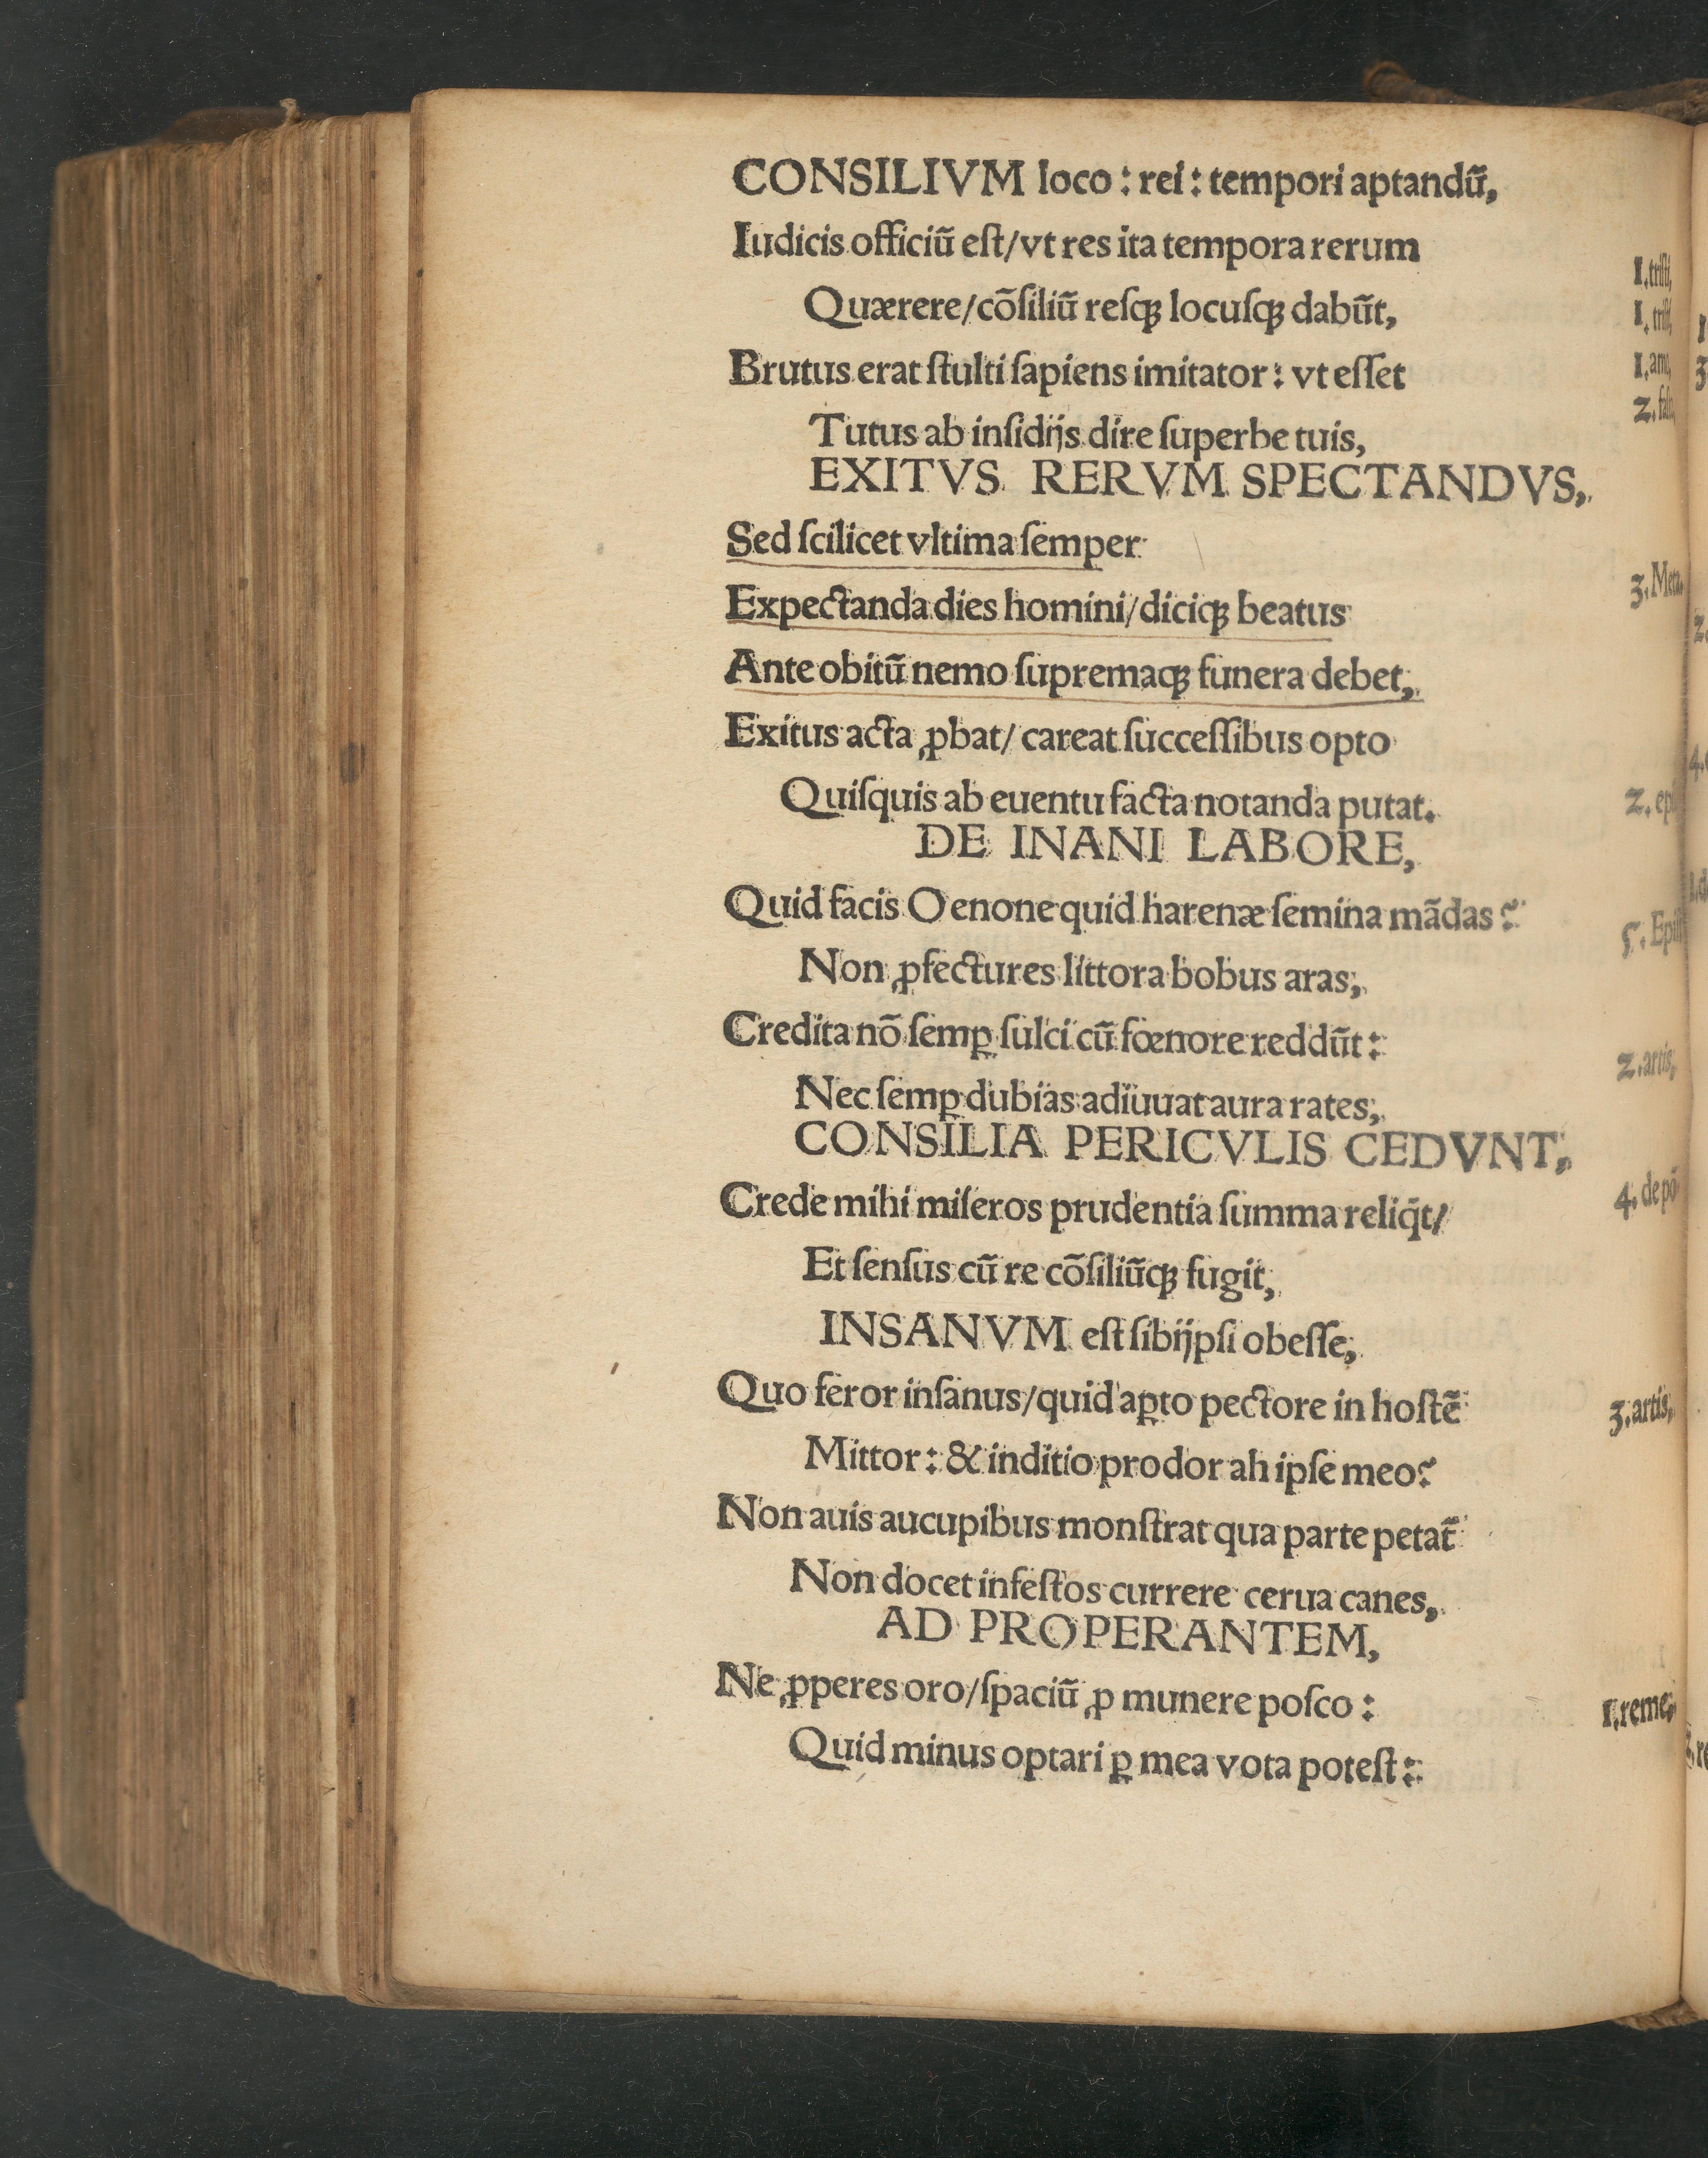 CONSILIVM loco : rei : tempori aptandū,
Iudicis officiū eſt/vt res ita tempora rerum
1.triſti,
Quærere/cōſiliū reſqꝫ locuſqꝫ dabūt,
1. triſti,
Brutus erat ſtulti ſapiens imitator : vt eſſet
1.amo,
2. faſto,
Tutus ab inſidijs dire ſuperbe tuis,
EXITVS RERVM SPECTANDVS,
Sed ſcilicet vltima ſemper
Expectanda dies homini/diciqꝫ beatus
3.Meta.
Ante obitū nemo ſupremaqꝫ funera debet,
Exitus acta ꝓbat/ careat ſucceſſibus opto
Quiſquis ab euentu facta notanda putat.
2. epi
DE INANI LABORE,
Quid facis Oenone quid harenæ ſemina mādas ?
5. Epiſt
Non ꝓfectures littora bobus aras,
Credita nō ſemꝑ ſulci cū fœnore reddūt :
2.artis,
Nec ſemꝑ dubias adiuuat aura rates,
CONSILIA PERICVLIS CEDVNT,
Crede mihi miſeros prudentia ſumma reliq̄t/
4. de pō
Et ſenſus cū re cōſiliūqꝫ fugit,
INSANVM eſt ſibijpſi obeſſe,
Quo feror inſanus/quid aꝑto pectore in hoſtē
3.artis,
Mittor : & inditio prodor ah ipſe meo?
Non auis aucupibus monſtrat qua parte petat̄
Non docet infeſtos currere cerua canes,
AD PROPERANTEM,
Ne ꝓperes oro/ſpaciū ꝓ munere poſco :
1.reme,
Quid minus optari ꝑ mea vota poteſt :